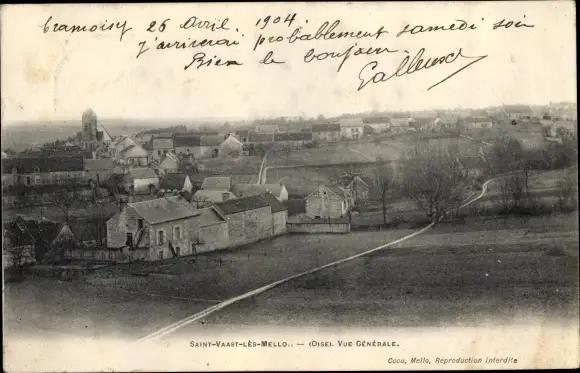 Cramoisy 26 Avril. 1904
J'arriverai probablement samedi soir
Bien le bonjour
SAINT-VAAST-LÈS-MELLO.. — (OISE). VUE GÉNÉRALE.
Cocu, Mello, Reproduction interdite